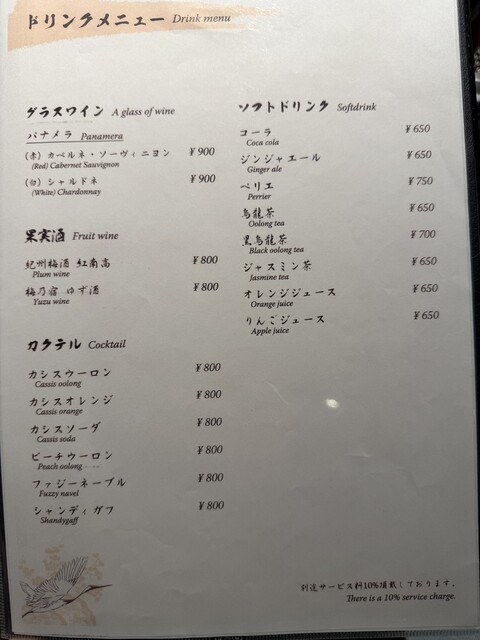 ドリンクメニュー Drink menu
グラスワイン A glass of wine
パナメラ Panamera
(赤) カベルネ・ソーヴィニヨン ¥ 900
(Red) Cabernet Sauvignon
(白) シャルドネ ¥ 900
(White) Chardonnay
果実酒 Fruit wine
紀州梅酒 紅南高 ¥ 800
Plum wine
梅乃宿 ゆず酒 ¥ 800
Yuzu wine
カクテル Cocktail
カシスウーロン ¥ 800
Cassis oolong
カシスオレンジ ¥ 800
Cassis orange
カシスソーダ ¥ 800
Cassis soda
ピーチウーロン ¥ 800
Peach oolong
ファジーネーブル ¥ 800
Fuzzy navel
シャンディガフ ¥ 800
Shandygaff
ソフトドリンク Softdrink
コーラ ¥ 650
Coca cola
ジンジャエール ¥ 650
Ginger ale
ペリエ ¥ 750
Perrier
烏龍茶 ¥ 650
Oolong tea
黒烏龍茶 ¥ 700
Black oolong tea
ジャスミン茶 ¥ 650
Jasmine tea
オレンジジュース ¥ 650
Orange juice
りんごジュース ¥ 650
Apple juice
別途サービス料10%頂戴しております。
There is a 10% service charge.